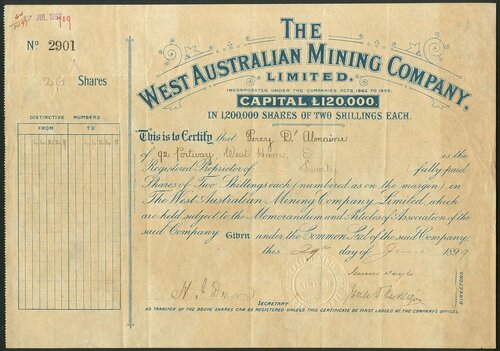 JUL 1899
Nº 2901
20 Shares
DISTINCTIVE NUMBERS
FROM TO
THE
WEST AUSTRALIAN MINING COMPANY,
LIMITED.
INCORPORATED UNDER THE COMPANIES ACTS, 1862 TO 1893.
CAPITAL £120,000.
IN 1,200,000 SHARES OF TWO SHILLINGS EACH.
This is to Certify that Percy D'Almaine
of 92 Portway West Ham, E is the
Registered Proprietor of Twenty fully paid
Shares of Two Shillings each (numbered as on the margin) in
The West Australian Mining Company Limited, which
are held subject to the Memorandum and Articles of Association of the
said Company Given under the Common Seal of the said Company,
this 29th day of June 1899
DIRECTORS.
SECRETARY
NO TRANSFER OF THE ABOVE SHARES CAN BE REGISTERED UNLESS THIS CERTIFICATE BE FIRST LODGED AT THE COMPANY'S OFFICES.